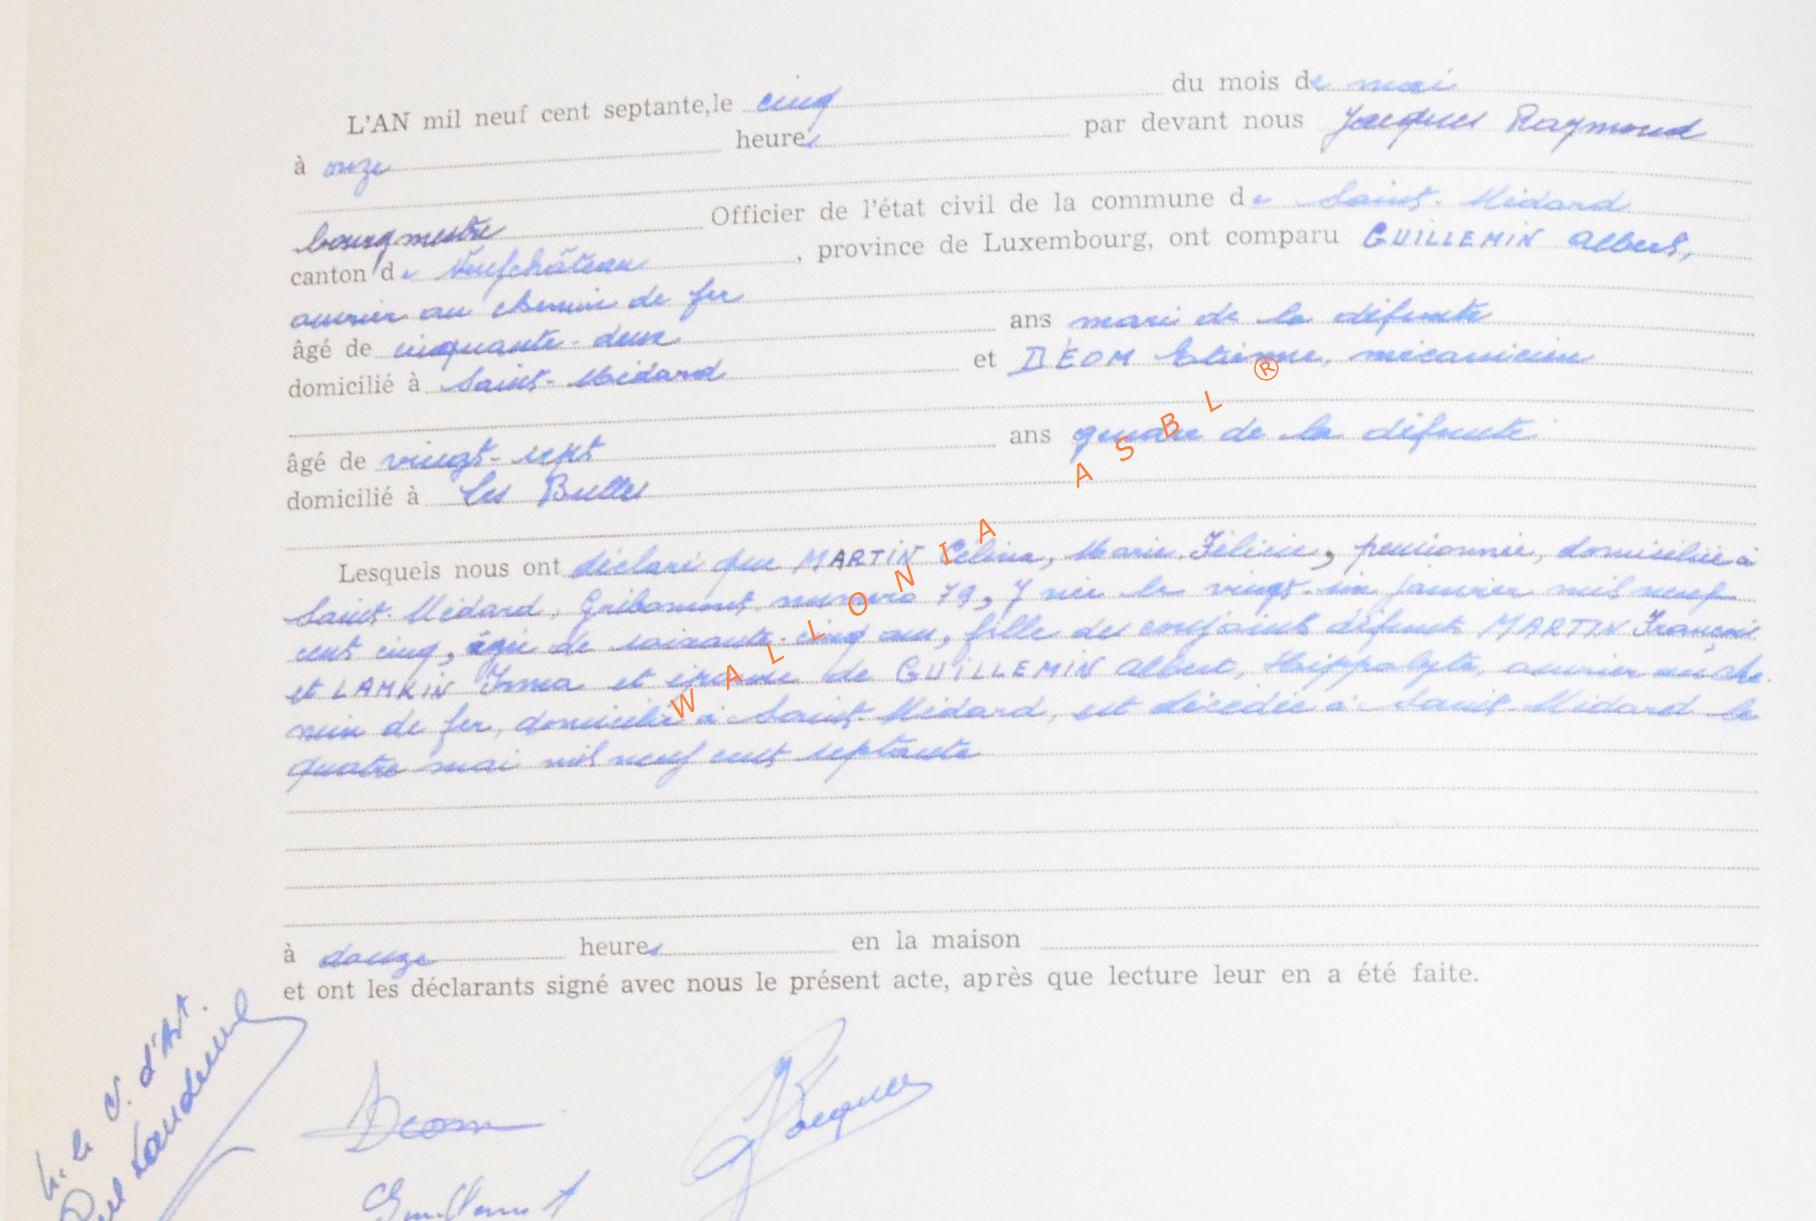 L'AN mil neuf cent septante, le cinq du mois de mai
à onze heures par devant nous Jacques Raymond
bourgmestre Officier de l'état civil de la commune de Saint-Médard
canton de Neufchâteau, province de Luxembourg, ont comparu GUILLEMIN Albert,
ouvrier au chemin de fer
âgé de cinquante-deux ans mari de la défunte
domicilié à Saint-Médard et DÉOM Etienne, mécanicien
âgé de vingt-sept ans gendre de la défunte
domicilié à Les Bulles
Lesquels nous ont déclaré que MARTIN Célina, Marie, Félicie, pensionnée, domiciliée à
Saint-Médard, Gribomont, numéro 79, y née le vingt-un janvier mil neuf
cent cinq, âgée de soixante-cinq ans, fille des conjoints défunts MARTIN François
et LAMKIN Irma et épouse de GUILLEMIN Albert, Hippolyte, ouvrier au che-
min de fer, domicilié à Saint-Médard, est décédée à Saint-Médard le
quatre mai mil neuf cent septante
à douze heures en la maison
et ont les déclarants signé avec nous le présent acte, après que lecture leur en a été faite.
d'Art.
Déom
Jacques
WALLONIA ASBL ®